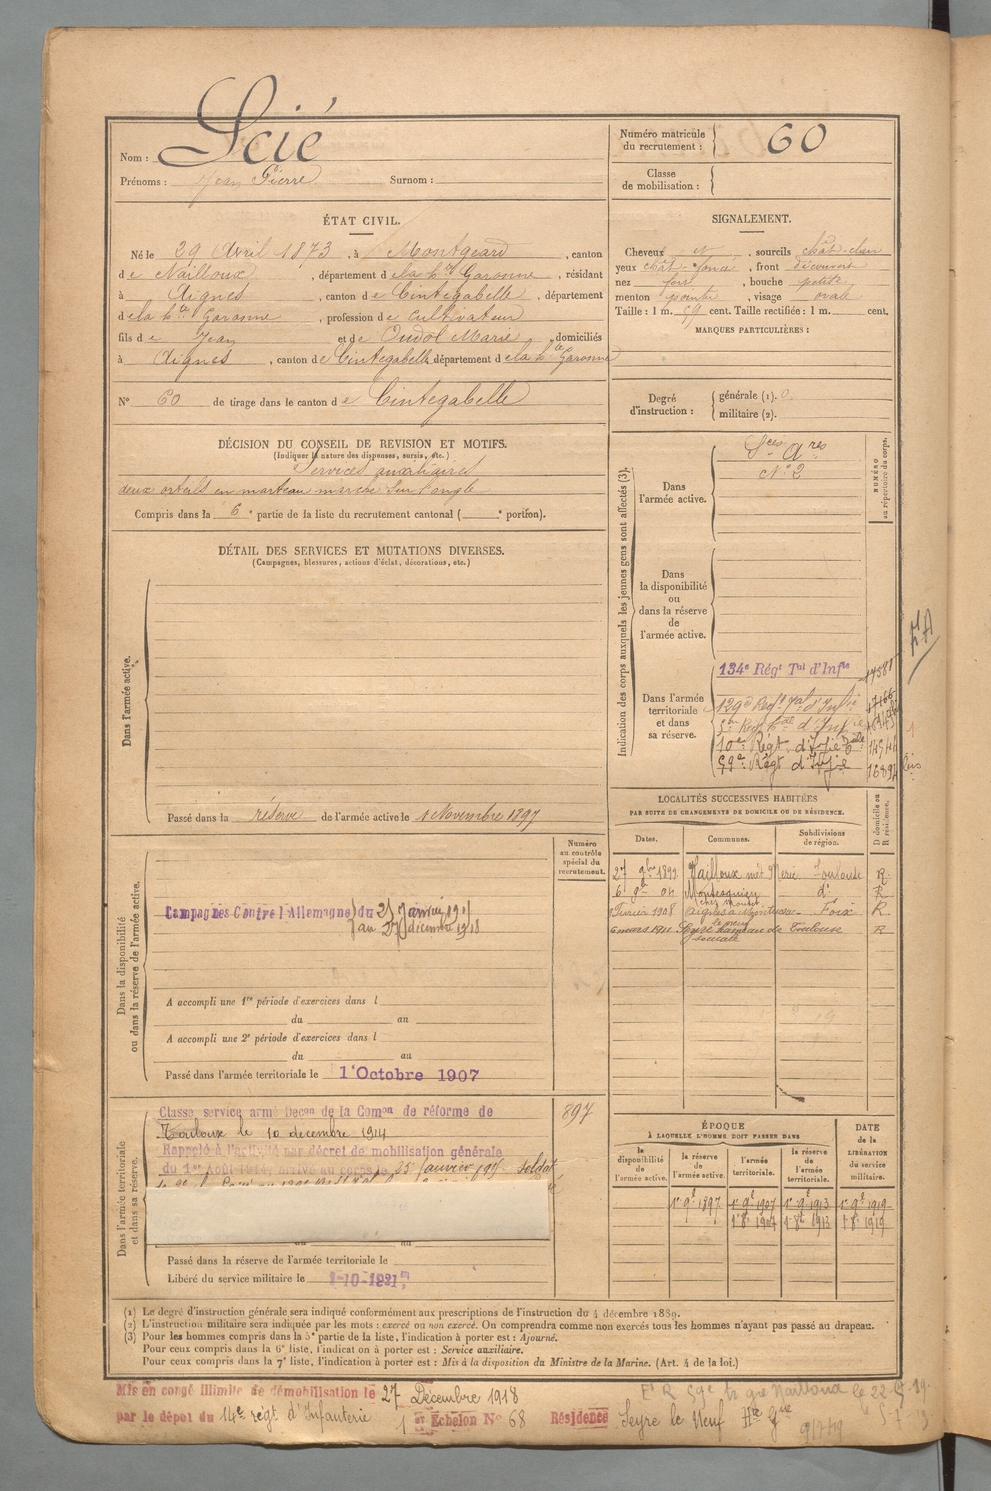 Nom : Scié
Prénoms : Jean Pierre Surnom :
Numéro matricule du recrutement : 60
Classe de mobilisation :
ÉTAT CIVIL.
Né le 29 Avril 1873, à Montgeard, canton
de Nailloux, département de la hte Garonne, résidant
à Aignes, canton de Cintegabelle, département
de la hte Garonne, profession de Cultivateur
fils de Jean et de Oudol Marie, domiciliés
à Aignes, canton de Cintegabelle département de la hte Garonne
N° 60 de tirage dans le canton de Cintegabelle
SIGNALEMENT.
Cheveux N, sourcils chât-clair
yeux chât-foncé, front découvert
nez fort, bouche petite
menton pointu, visage ovale
Taille : 1 m. 59 cent. Taille rectifiée : 1 m. cent.
MARQUES PARTICULIÈRES :
Degré d'instruction : générale (1). 0
militaire (2).
DÉCISION DU CONSEIL DE REVISION ET MOTIFS.
(Indiquer la nature des dispenses, sursis, etc.)
Services auxiliaires
deux orteils en marteau marche sur l'ongle
Compris dans la 6e partie de la liste du recrutement cantonal ( e portion).
DÉTAIL DES SERVICES ET MUTATIONS DIVERSES.
(Campagnes, blessures, actions d'éclat, décorations, etc.)
Dans l'armée active.
Passé dans la réserve de l'armée active le 1 Novembre 1897
Indication des corps auxquels les jeunes gens sont affectés (3).
NUMÉRO au répertoire du corps.
Dans l'armée active.
Sces Ares
N° 2
Dans la disponibilité ou dans la réserve de l'armée active.
Dans l'armée territoriale et dans sa réserve.
134e Régt Tal d'Infie 17581
129e Regt Tal d'Infie 17166
5me Regt tal d'Infie
10e Régt d'Infie Tale
59e Régt d'Infie 16894 bis
LOCALITÉS SUCCESSIVES HABITÉES
PAR SUITE DE CHANGEMENTS DE DOMICILE OU DE RÉSIDENCE.
Dates. Communes. Subdivisions de région. D domicile ou R résidence.
27 9bre 1899 Nailloux Toulouse R
6 9bre 04 d° R
Février 1908 Aignes Foix R
6 mars 1911 Seyre Toulouse R
Dans la disponibilité ou dans la réserve de l'armée active.
Numéro au contrôle spécial du recrutement.
Campagnes Contre l'Allemagne du 25 Janvier 1915
au 27 décembre 1918
A accompli une 1re période d'exercices dans l
du au
A accompli une 2e période d'exercices dans l
du au
Passé dans l'armée territoriale le 1er Octobre 1907
Dans l'armée territoriale et dans sa réserve.
Classe service armé Decon de la Comon de réforme de
Toulouse le 10 decembre 1914
Rappelé à l'activité par décret de mobilisation générale
du 1er Août 1914, arrivé au corps le 25 Janvier 1915 soldat
897
Passé dans la réserve de l'armée territoriale le
Libéré du service militaire le 1-10-1921
ÉPOQUE
À LAQUELLE L'HOMME DOIT PASSER DANS
DATE de la LIBÉRATION du service militaire.
la disponibilité de l'armée active. la réserve de l'armée active. l'armée territoriale. la réserve de l'armée territoriale.
1er 9e 1897 1er 9e 1907 1er 9e 1913 1er 9e 1919
1 8e 1907 1 8e 1913 1 8e 1919
(1) Le degré d'instruction générale sera indiqué conformément aux prescriptions de l'instruction du 4 décembre 1889.
(2) L'instruction militaire sera indiquée par les mots : exercé ou non exercé. On comprendra comme non exercés tous les hommes n'ayant pas passé au drapeau.
(3) Pour les hommes compris dans la 5e partie de la liste, l'indication à porter est : Ajourné.
Pour ceux compris dans la 6e liste, l'indication à porter est : Service auxiliaire.
Pour ceux compris dans la 7e liste, l'indication à porter est : Mis à la disposition du Ministre de la Marine. (Art. 4 de la loi.)
Mis en congé illimité de démobilisation le 27 Décembre 1918
par le dépôt du 14e régt d'Infanterie
1er Échelon N° 68 Résidence Seyre le Neuf Hte Gne